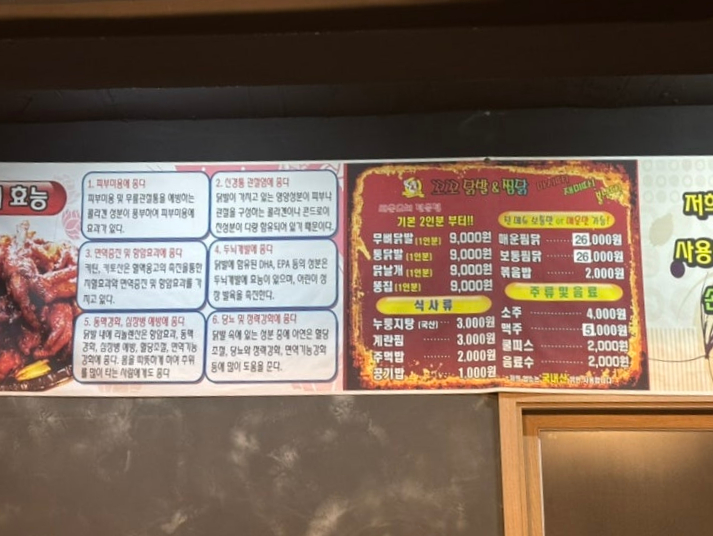 효능
1. 피부미용에 좋다
피부미용 및 무릎관절통을 예방하는
콜라겐 성분이 풍부하여 피부미용에
효과가 있다.
2. 신경통 관절염에 좋다
닭발이 가지고 있는 영양성분이 피부나
관절을 구성하는 콜라겐이나 콘드로이
친성분이 다량 함유되어 있기 때문이다.
3. 면역증진 및 항암효과에 좋다
키틴, 키토산은 혈액응고의 촉진을통한
지혈효과와 면역증진 및 항암효과를 가
지고 있다.
4. 두뇌개발에 좋다
닭발에 함유된 DHA, EPA 등의 성분은
두뇌개발에 효능이 있으며, 어린이 성
장 발육을 촉진한다.
5. 동맥경화, 심장병 예방에 좋다
닭발 내에 리놀렌산은 항암효과, 동맥
경화, 심장병 예방, 혈당조절, 면역기능
강화에 좋다. 몸을 따뜻하게 하여 추위
를 많이 타는 사람에게도 좋다
6. 당뇨 및 성력강화에 좋다
닭발 속에 있는 성분 중에 아연은 혈당
조절, 당뇨와 성력강화, 면역기능강화
등에 많이 도움을 준다.
닭발 & 찜닭
기본 2인분 부터!!
무뼈닭발 (1인분) 9,000원
통닭발 (1인분) 9,000원
닭날개 (1인분) 9,000원
똥집 (1인분) 9,000원
식사류
누룽지탕 (국산) 3,000원
계란찜 3,000원
주먹밥 2,000원
공기밥 1,000원
매운찜닭 26,000원
보통찜닭 26,000원
볶음밥 2,000원
주류및음료
소주 4,000원
맥주 5,000원
쿨피스 2,000원
음료수 2,000원
국내산
저희
사용